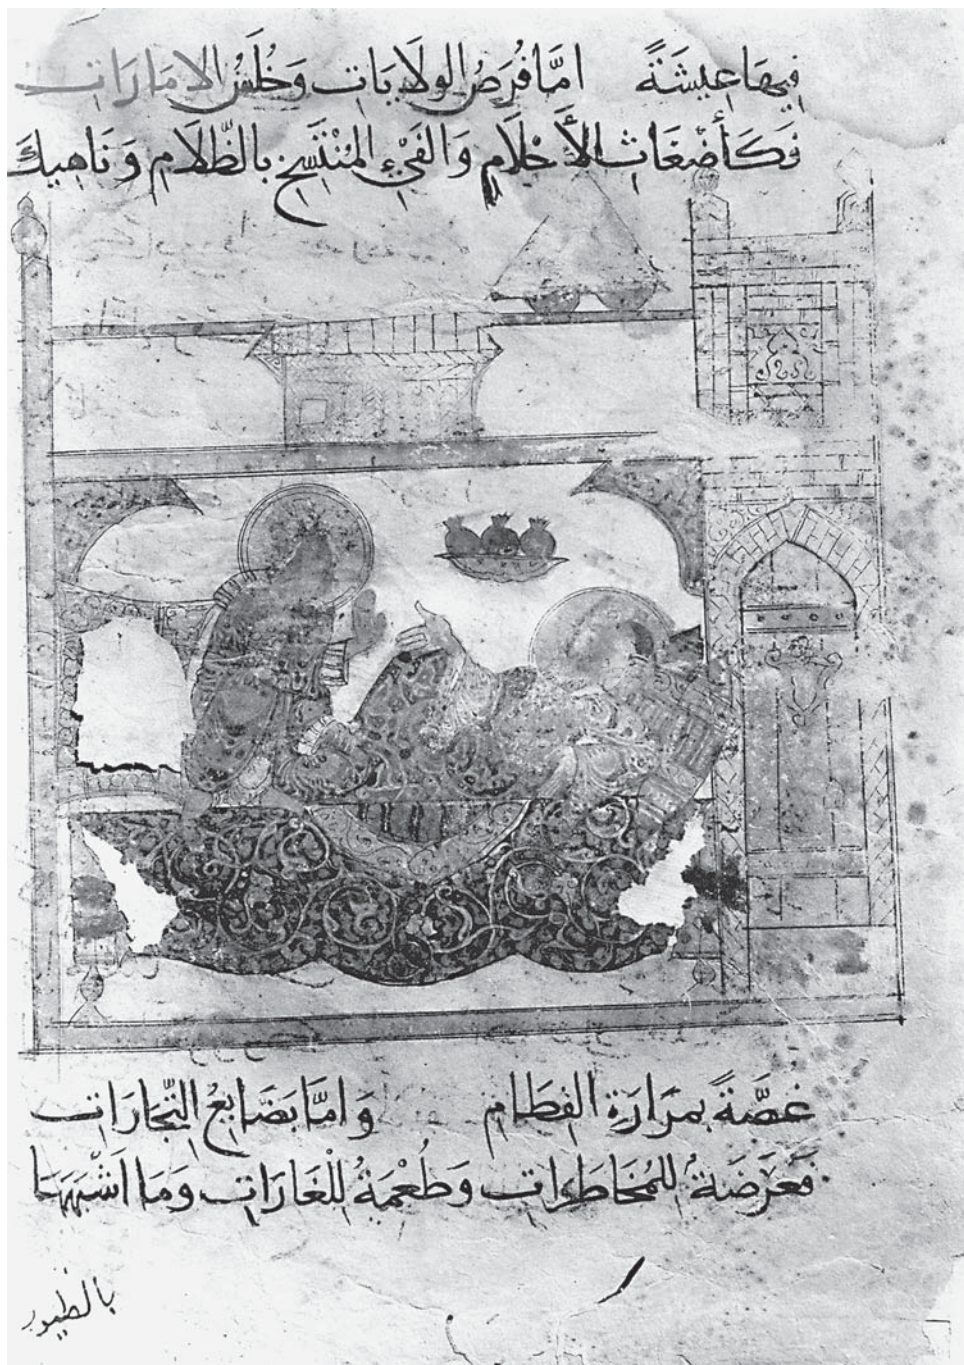 فِيهَا عِيشَةً اَمَّا فُرَصُ الوِلَايَاتِ وَخُلَسُ الاِمَارَاتِ
فَكَأَضْغَاثِ الأَحْلَامِ وَالفَيْءِ المُنْتَسِخِ بِالظَّلَامِ وَنَاهِيكَ
غُصَّةً بِمَرَارَةِ الفِطَامِ وَامَّا بَضَايِعُ التِّجَارَاتِ
فَعُرْضَةٌ لِلمُخَاطَرَاتِ وَطُعْمَةٌ لِلْغَارَاتِ وَمَا اَشْبَهَهَا
بالطيور